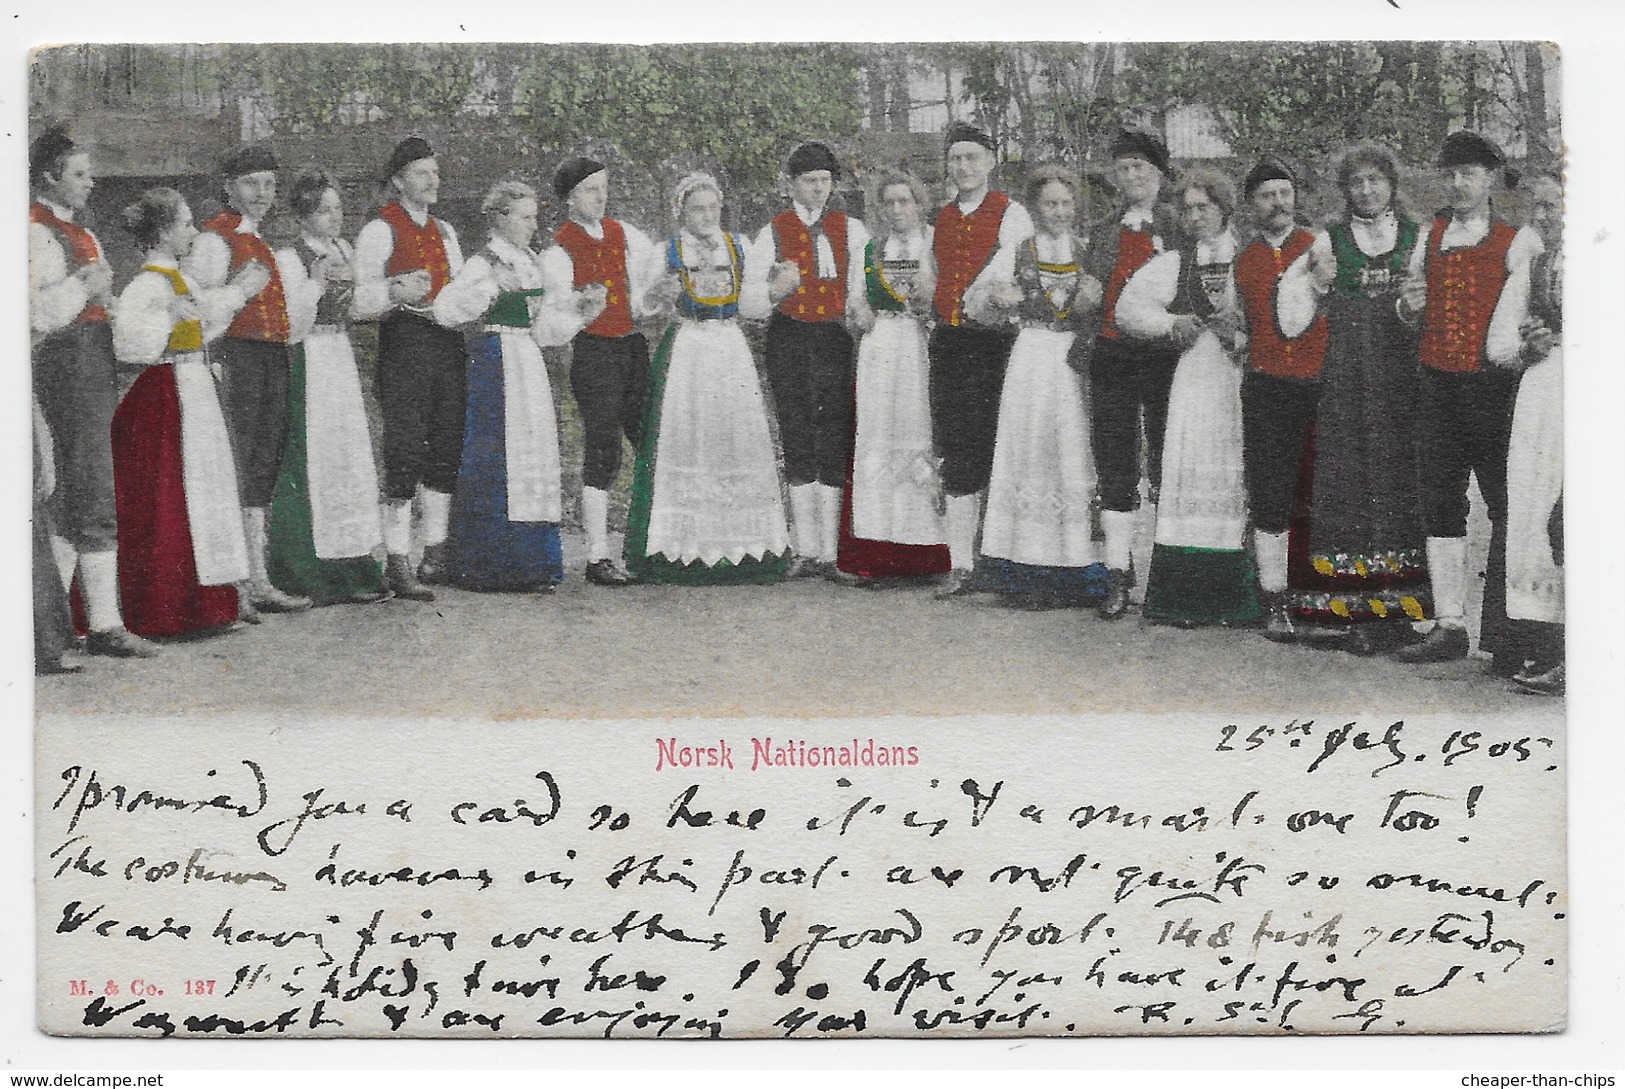 Norsk Nationaldans
25th Feb. 1905.
I promised you a card so here it is & a smart one too!
The costumes however in this part are not quite so smart.
We are having fine weather & good sport. 148 fish yesterday.
M. & Co. 137
It is holiday time here. I do hope you have it fine at
& are enjoying your visit. R. St. G.
www.delcampe.net
cheaper-than-chips